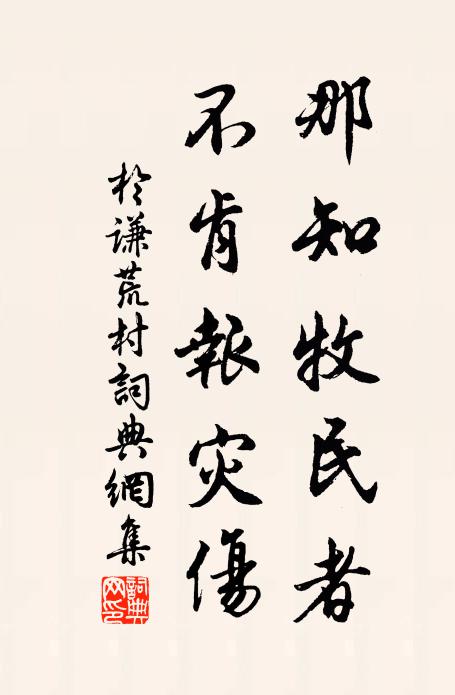 那知牧民者
不肯報災傷
於謙荒村詞典網集
詞典网印